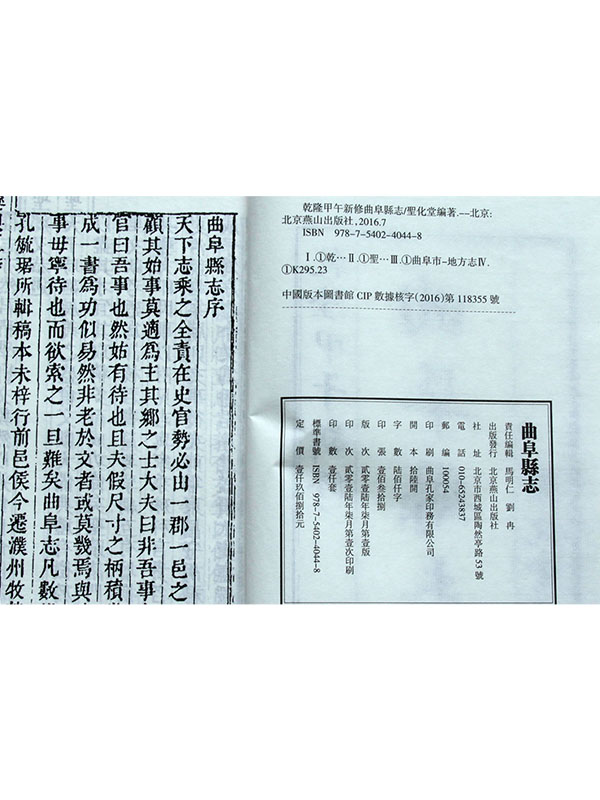 乾隆甲午新修曲阜縣志/聖化堂編著.--北京:
北京燕山出版社,2016.7
ISBN 978-7-5402-4044-8
Ⅰ.①乾… Ⅱ.①聖… Ⅲ.①曲阜市-地方志Ⅳ.
①K295.23
中國版本圖書館 CIP 數據核字(2016)第 118355 號
曲阜縣志
責任編輯 馬明仁 劉冉
出版發行 北京燕山出版社
社址 北京市西城區陶然亭路 53 號
電話 010-65243837
郵編 100054
印刷 曲阜孔家印務有限公司
開本 拾陸開
字數 陸佰仟字
印張 壹佰叁拾捌
版次 貳零壹陸年柒月第壹版
印次 貳零壹陸年柒月第壹次印刷
印數 壹仟套
標準書號 ISBN 978-7-5402-4044-8
定價 壹仟玖佰捌拾元
曲阜縣志序
天下志乘之全責在史官勢必山一郡一邑之
顧其始事莫適為主其鄉之士大夫曰非吾事
官曰吾事也然姑有待也且夫假尺寸之柄積
成一書為功似易然非老於文者或莫幾焉與
事毋寧待也而欲索之一旦難矣曲阜志凡數
孔毓琚所輯稿本未梓行前邑侯今遷濮州牧